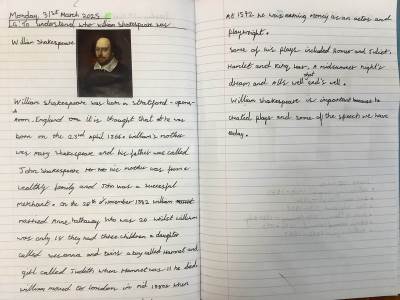 Monday, 31st March 2025
L.O. To understand who william Shakespeare was
William Shakespeare
William Shakespeare was born in stratford - upon -
England it is thought that he was
born on the 23rd April 1564. William's mother
was mary Shakespeare and his father was called
John Shakespeare his mother was from a
wealthy family and John was a
merchant. on the 28th of November 1582 William
married Anne, hathaway who was 26. whilst william
was only 18 they had three children a daughter
called and twins a boy called Hamnet and
girl called Judeth when Hamnet was 11 he died
william moved to London in mid 1580s when
At 1592 he was earning money as an actor and
playwright.
Some of his plays included Romeo and
Hamlet and King lear, A midsummer night's
dream and Alls well that ends well.
William Shakespeare is important because he
created plays and some of the speech we have
today.